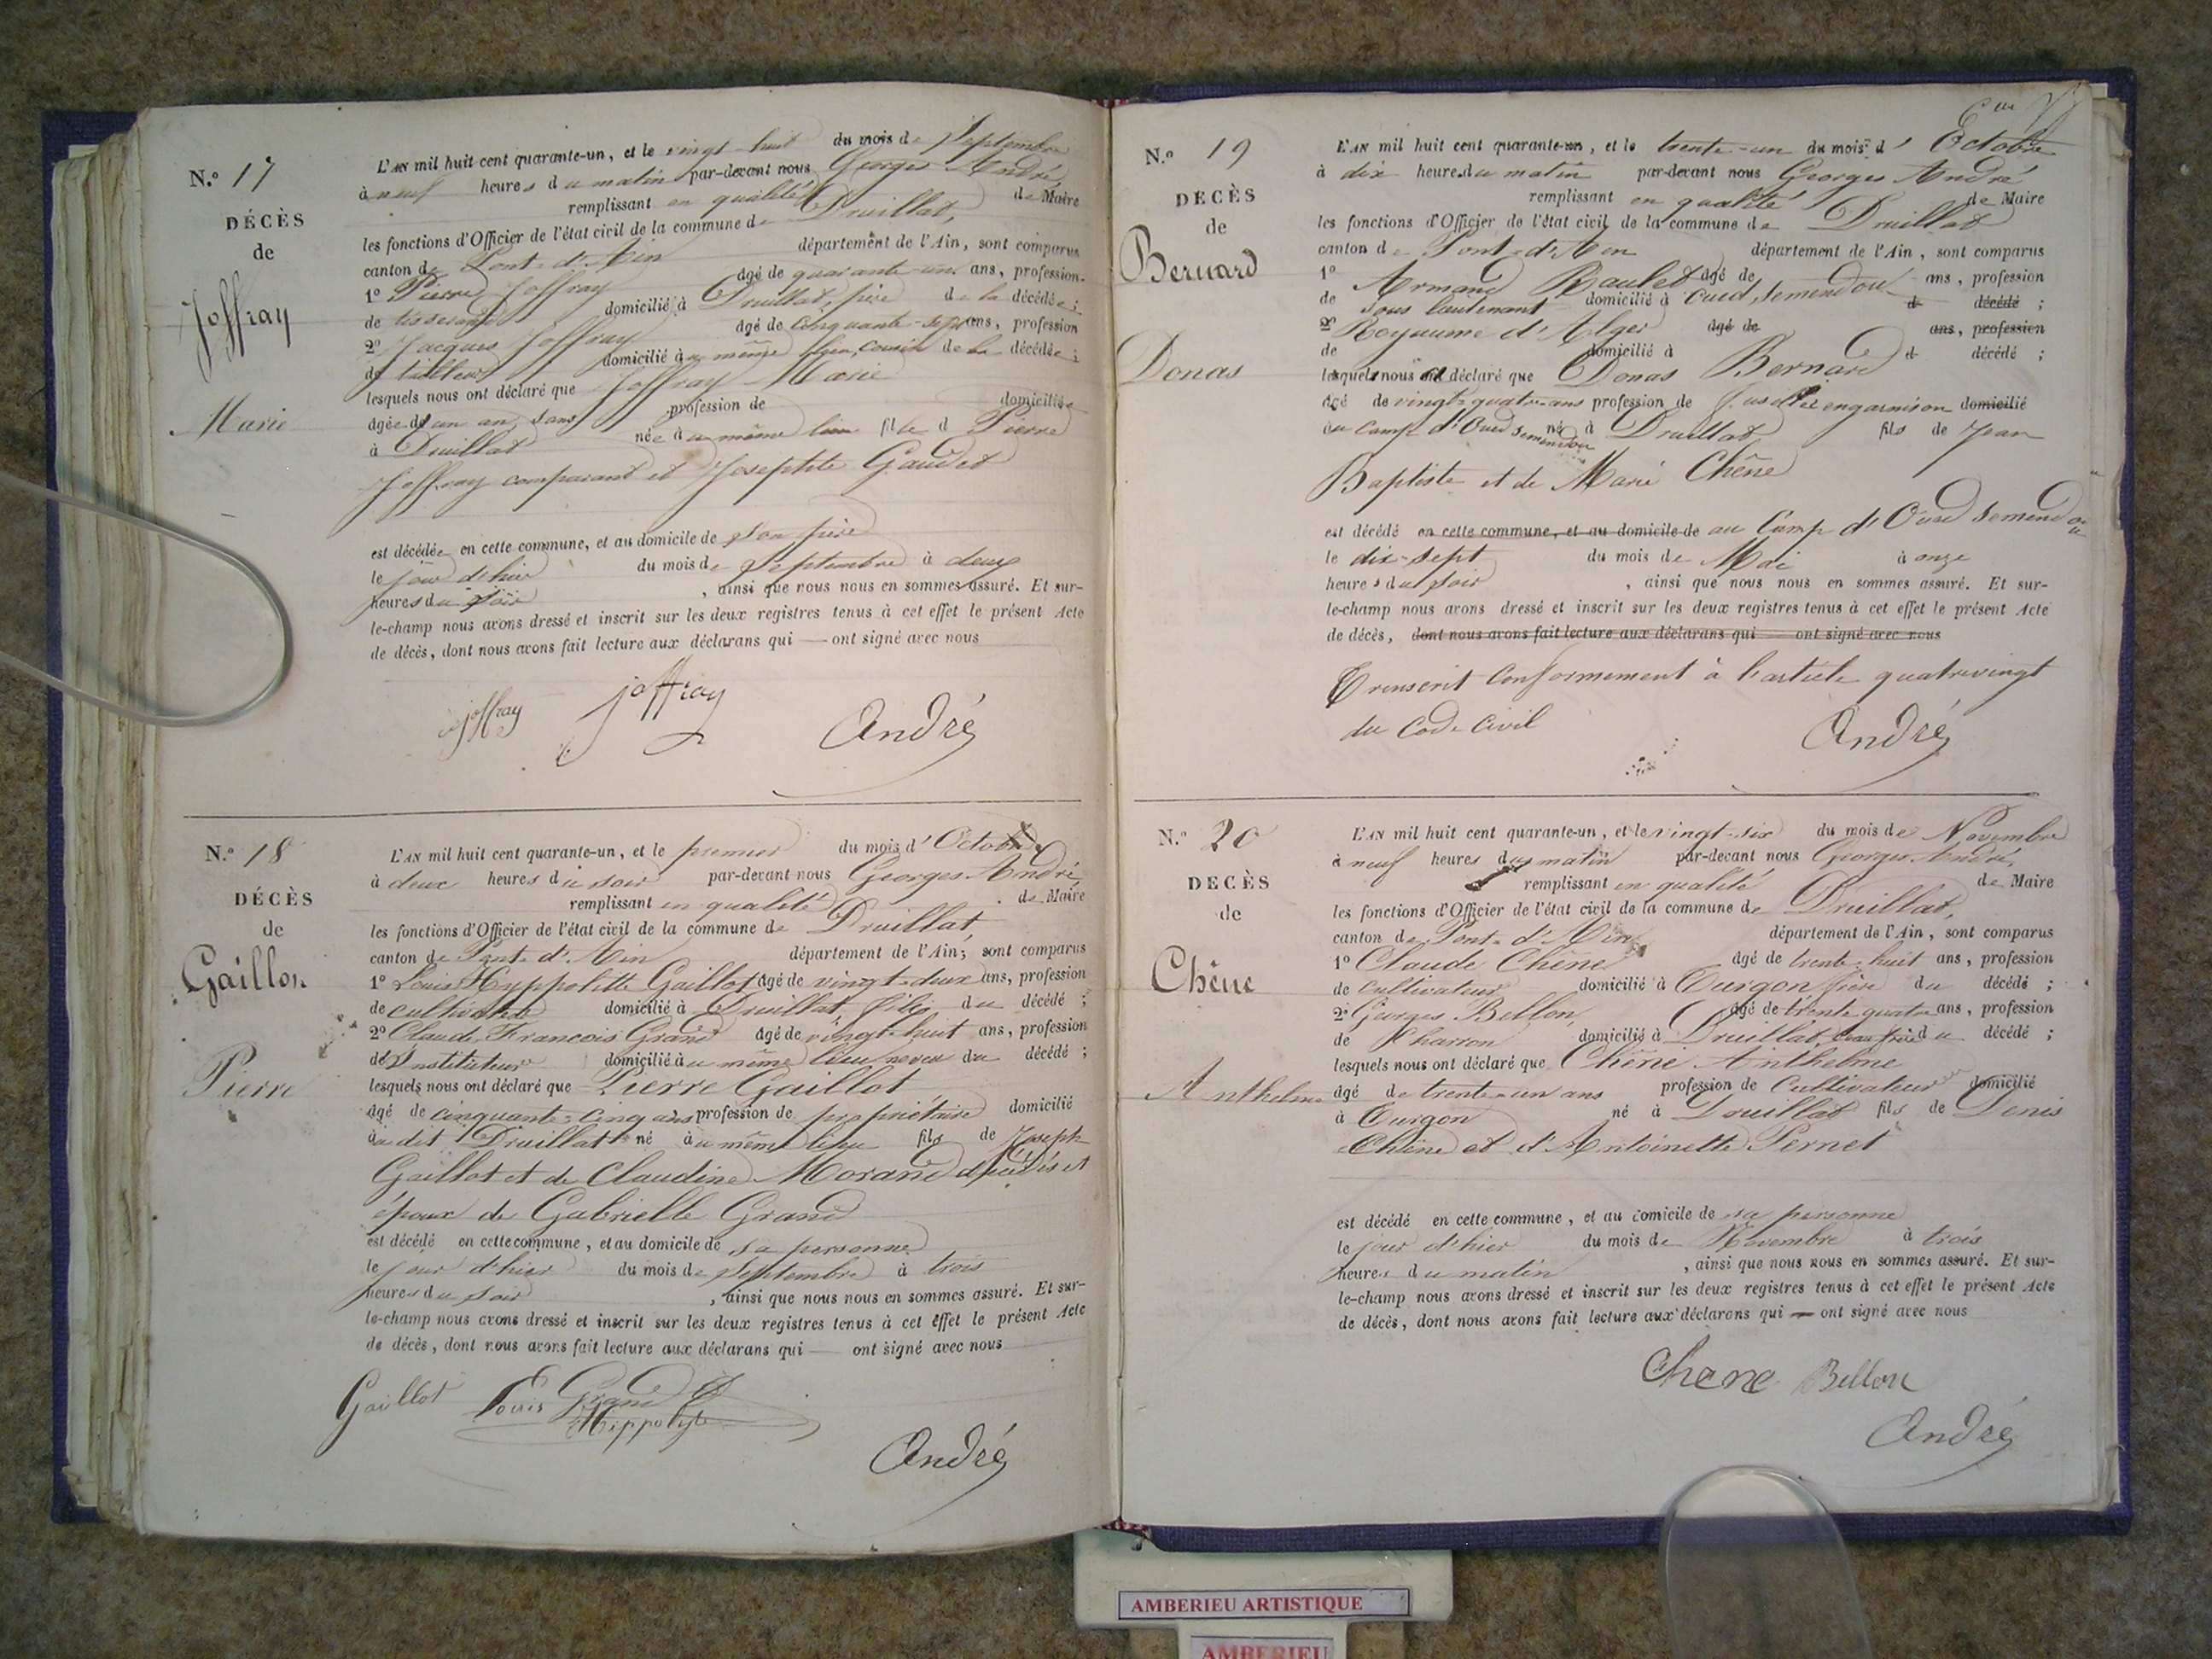 N.º 17
DÉCÈS
de
Joffray
Marie
L'AN mil huit cent quarante-un, et le vingt-huit du mois de Septembre
à neuf heures du matin par-devant nous Georges André
remplissant en qualité de Maire
les fonctions d'Officier de l'état civil de la commune de Druillat,
canton de Pont-d'Ain département de l'Ain, sont comparus
1º Pierre Joffray âgé de quarante-un ans, profession
de tisserand domicilié à Druillat, père de la décédée;
2º Jacques Joffray âgé de cinquante-sept ans, profession
de tailleur domicilié au même lieu, cousin de la décédée;
lesquels nous ont déclaré que Joffray Marie
âgée de un an, sans profession de domiciliée
à Druillat née au même lieu fille d Pierre
Joffray comparant et Josephte Gaudet
est décédée en cette commune, et au domicile de son père
le jour d'hier du mois de Septembre à deux
heures du soir, ainsi que nous nous en sommes assuré. Et sur-
le-champ nous avons dressé et inscrit sur les deux registres tenus à cet effet le présent Acte
de décès, dont nous avons fait lecture aux déclarans qui — ont signé avec nous
joffray joffray André
N.º 18
DÉCÈS
de
Gaillot
Pierre
L'AN mil huit cent quarante-un, et le premier du mois d'Octobre
à deux heures du soir par-devant nous Georges André
remplissant en qualité de Maire
les fonctions d'Officier de l'état civil de la commune de Druillat
canton de Pont-d'Ain département de l'Ain, sont comparus
1º Louis Hyppolitte Gaillot âgé de vingt-deux ans, profession
de cultivateur domicilié à Druillat, fils du décédé;
2º Claude François Grand âgé de vingt-huit ans, profession
d'Instituteur domicilié au même lieu, neveu du décédé;
lesquels nous ont déclaré que Pierre Gaillot
âgé de cinquante-cinq ans profession de propriétaire domicilié
audit Druillat né au même lieu fils de Joseph
Gaillot et de Claudine Morand décédés et
époux de Gabrielle Grand
est décédé en cette commune, et au domicile de sa personne
le jour d'hier du mois de Septembre à trois
heures du soir, ainsi que nous nous en sommes assuré. Et sur-
le-champ nous avons dressé et inscrit sur les deux registres tenus à cet effet le présent Acte
de décès, dont nous avons fait lecture aux déclarans qui — ont signé avec nous
Gaillot Louis Grand
Hippolyte
André
N.º 19
DECÈS
de
Bernard
Donas
L'AN mil huit cent quarante-un, et le trente-un du mois d'Octobre
à dix heures du matin par-devant nous Georges André
remplissant en qualité de Maire
les fonctions d'Officier de l'état civil de la commune de Druillat
canton de Pont-d'Ain département de l'Ain, sont comparus
1º Armand Raulet âgé de ans, profession
de sous lieutenant domicilié à Oued, Semendou d décédé;
2º Royaume d'Alger âgé de ans, profession
de domicilié à d décédé;
lesquels nous ont déclaré que Donas Bernard
âgé de vingt-quatre ans profession de fusillier en garnison domicilié
au camp d'Oued Semendou né à Druillat fils de Jean
Baptiste et de Marie Chêne
est décédé en cette commune, et au domicile de au Camp d'Oued Semendou
le dix-sept du mois de Mai à onze
heures du soir, ainsi que nous nous en sommes assuré. Et sur-
le-champ nous avons dressé et inscrit sur les deux registres tenus à cet effet le présent Acte
de décès, dont nous avons fait lecture aux déclarans qui — ont signé avec nous
Transcrit conformement à l'article quatrevingt
du Code Civil André
N.º 20
DECÈS
de
Chêne
Anthelme
L'AN mil huit cent quarante-un, et le vingt-six du mois de Novembre
à neuf heures du matin par-devant nous Georges André,
remplissant en qualité de Maire
les fonctions d'Officier de l'état civil de la commune de Druillat,
canton de Pont-d'Ain département de l'Ain, sont comparus
1º Claude Chêne âgé de trente-huit ans, profession
de cultivateur domicilié à Turgon frère du décédé;
2º Georges Bellon, âgé de trente quatre ans, profession
de Charron domicilié à Druillat, beau frère du décédé;
lesquels nous ont déclaré que Chêne Anthelme
âgé de trente-un ans profession de Cultivateur domicilié
à Turgon né à Druillat fils de Denis
Chêne et d'Antoinette Pernet
est décédé en cette commune, et au domicile de sa personne
le jour d'hier du mois de Novembre à trois
heures du matin, ainsi que nous nous en sommes assuré. Et sur-
le-champ nous avons dressé et inscrit sur les deux registres tenus à cet effet le présent Acte
de décès, dont nous avons fait lecture aux déclarans qui — ont signé avec nous
Chene Bellon
André
AMBERIEU ARTISTIQUE
AMBERIEU